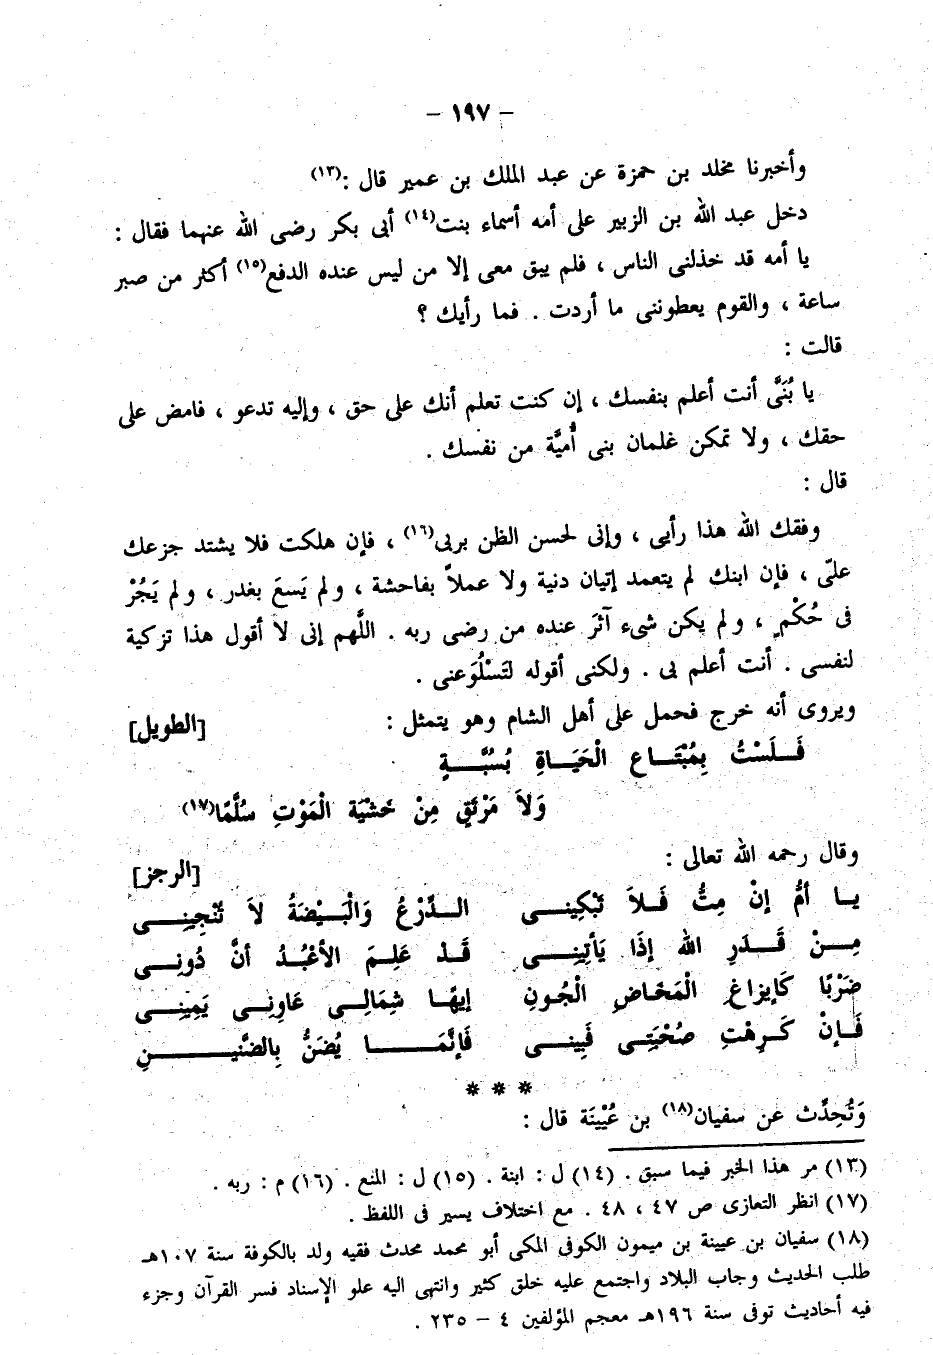 – ١٩٧ –
وأخبرنا مخلد بن حمزة عن عبد الملك بن عمير قال :(١٣)
دخل عبد الله بن الزبير على أمه أسماء بنت(١٤) أبى بكر رضى الله عنهما فقال :
يا أمه قد خذلنى الناس ، فلم يبق معى إلا من ليس عنده الدفع(١٥) أكثر من صبر
ساعة ، والقوم يعطوننى ما أردت . فما رأيك ؟
قالت :
يا بُنَىَّ أنت أعلم بنفسك ، إن كنت تعلم أنك على حق ، وإليه تدعو ، فامض على
حقك ، ولا تمكن غلمان بنى أُميَّة من نفسك .
قال :
وفقك الله هذا رأيى ، وإنى لحسن الظن بربى(١٦) ، فإن هلكت فلا يشتد جزعك
علىّ ، فإن ابنك لم يتعمد إتيان دنية ولا عملاً بفاحشة ، ولم يَسعَ بغدر ، ولم يَجُرْ
فى حُكْمٍ ، ولم يكن شىء آثَرَ عنده من رضى ربه . اللَّهم إنى لا أقول هذا تزكية
لنفسى . أنت أعلم بى . ولكنى أقوله لتَسْلُوَعنى .
ويروى أنه خرج فحمل على أهل الشام وهو يتمثل : [الطويل]
فَـلَسْتُ بِمُبْتَـاعِ الْحَيَـاةِ بُسُبَّـــةٍ
وَلاَ مَرْتَقٍ مِنْ خَشْيَة الْمَوْتِ سُلَّمًا(١٧)
وقال رحمه الله تعالى : [الرجز]
يـا أمُّ إنْ مِتُّ فَـلاَ تَبْكِينـى الـدِّرْعُ وَالْبَـيْضَةُ لاَ تُنْجِينِـــى
مِـــنْ قَـــدَرِ الله إذَا يَأتِينِــى قَـدْ عَلِـمَ الأعْبُـدُ أنَّ دُونِـــى
ضَرْبًا كَإيزاغِ الْمَخَاضِ الْجُونِ إيهًـا شِمَالِـى عَاوِنِـى يَمِينِــى
فَـإنْ كَـرِهْتِ صُحْبَتِـى فَبِينــى فَإنَّمَــــــا يُضَنُّ بِالضَّنيــــــــنِ
* * *
وَتُحِدِّث عن سفيان(١٨) بن عُيْينَة قال :
(١٣) مر هذا الخبر فيما سبق . (١٤) ل : ابنة . (١٥) ل : المنع . (١٦) م : ربه .
(١٧) انظر التعازى ص ٤٧ ، ٤٨ . مع اختلاف يسير فى اللفظ .
(١٨) سفيان بن عيينة بن ميمون الكوفى المكى أبو محمد محدث فقيه ولد بالكوفة سنة ١٠٧هـ
طلب الحديث وجاب البلاد واجتمع عليه خلق كثير وانتهى اليه علو الإسناد فسر القرآن وجزء
فيه أحاديث توفى سنة ١٩٦هـ معجم المؤلفين ٤ – ٢٣٥ .